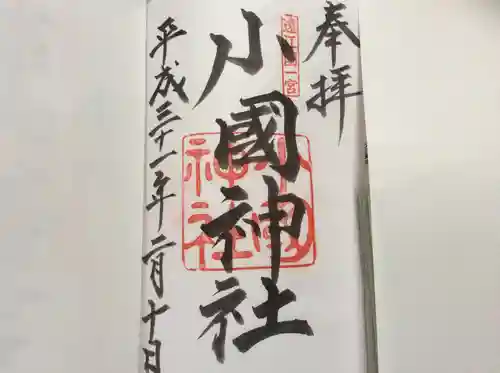 奉拝
遠江國一宮
小國神社
小國神社
平成三十一年二月十日